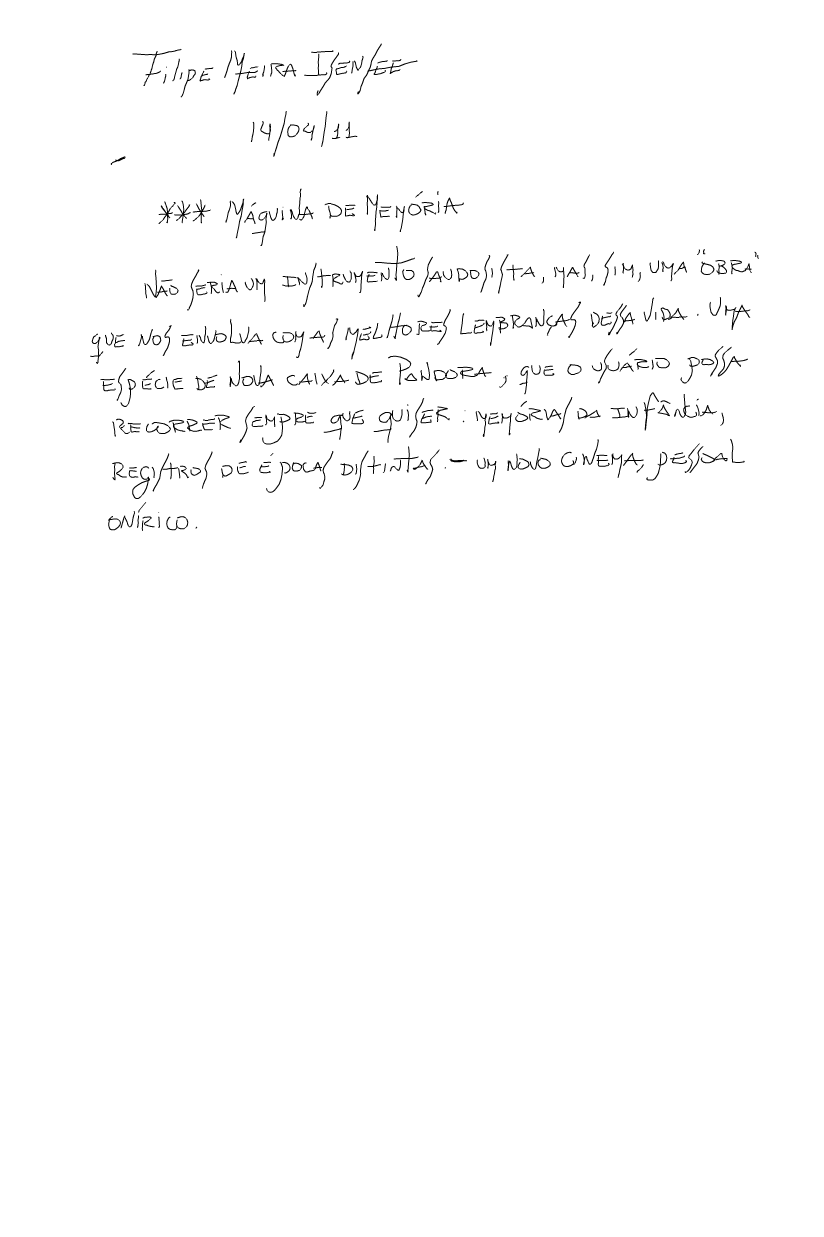 Filipe Meira Isensee
14/04/11
*** Máquina de Memória
Não seria um instrumento saudosista, mas, sim, uma "obra"
que nos envolva com as melhores lembranças dessa vida. Uma
espécie de nova caixa de Pandora, que o usuário possa
recorrer sempre que quiser: memórias da infância,
registros de épocas distintas. – um novo cinema, pessoal
onírico.